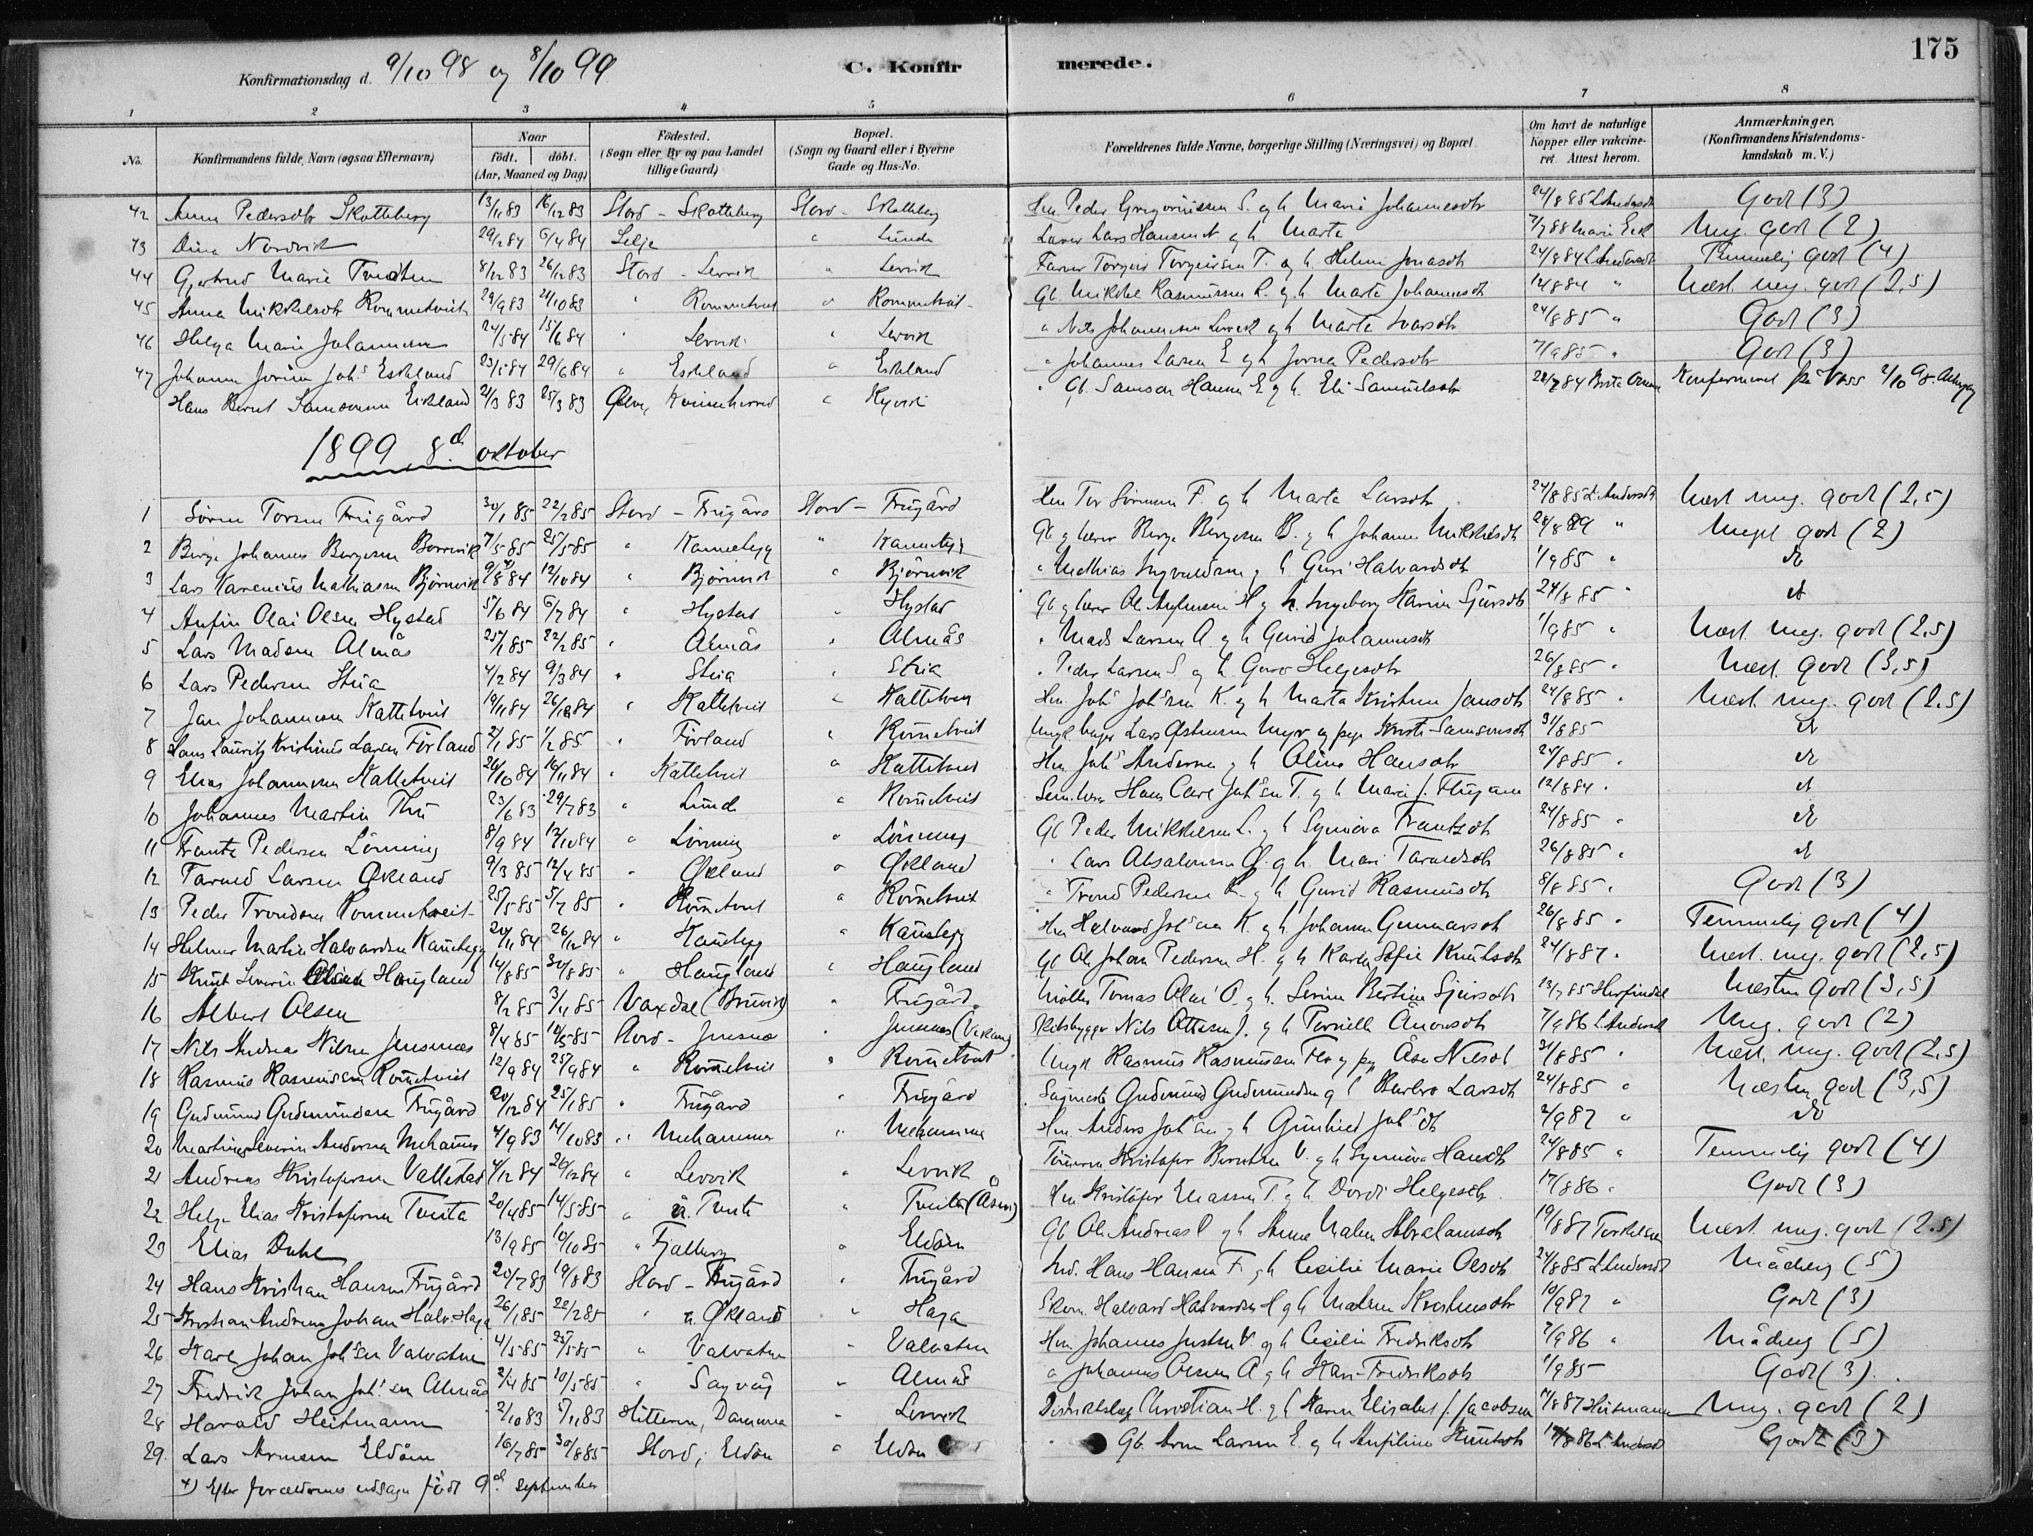 175
Konfirmationsdag d. 9/10 98 og 8/10 99
C. Konfirmerede.
1 2 3 4 5 6 7 8
No. Konfirmandens fulde Navn (ogsaa Efternavn) Naar født. døbt. (Aar, Maaned og Dag) Fødested. (Sogn eller By og paa Landet tillige Gaard) Bopæl. (Sogn og Gaard eller i Byerne Gade og Hus-No. Forældrenes fulde Navne, borgerlige Stilling (Næringsvei) og Bopæl Om havt de naturlige Kopper eller vakcineret. Attest herom. Anmærkninger. (Konfirmandens Kristendomskundskab m. V.)
42 Anna Pedersdtr Skatteberg 13/11 83 16/12 83 Stord - Skatteberg Stord - Skatteberg Hm. Peder S. og h Marie Johannesdtr 24/8 85 Godt (3)
43 Dina Nordvik 29/2 84 6/4 84 Selje " Lunde Lærer Lars Hansen N og h Marta 7/7 88 Meg. godt (2)
44 Gjertrud Marie 8/12 83 26/12 83 Stord - Lervik " Lervik Torgeirsen T. og h. Helene Jonasdtr 24/8 84 Temmelig godt (4)
45 Anna Mikkelsdtr Rommetveit 29/9 83 21/10 83 " Rommetveit " Rommetveit Gb. Mikkel Rasmussen R. og h Marta Johannesdtr 14/8 84 " Næst meg. godt (2,5)
46 Helga Marie Johannesen 24/5 84 15/6 84 " Lervik " Lervik " Nils Johannesen Lervik og h Marta Ivarsdtr 24/8 85 " Godt (3)
47 Johanna Jorine Johs Eskeland 23/5 84 29/6 84 " Eskeland " Eskeland " Johannes Larsen E og h Jorina Pedersdtr 7/9 85 " Godt (3)
Hans Bernt Samsonsen Eikland 21/3 83 25/3 83 Ølve, Kvinnherred " Gb. Samson Hansen E og h. Eli Samuelsdtr Konfirmeret på Voss 2/10 98
1899, 8d. oktober
1 Søren Torsen Frugård 30/1 85 22/2 85 Stord - Frugård Stord - Frugård Hm Tor Sørensen F. og h Marta Larsdtr 24/8 85 L. Andersdtr Næst meg. godt (2,5)
2 Børge Johannes Børgesen 7/5 85 25/5 85 " Kannebyg " Kannebyg Gb og lærer Børge Børgesen B. og h Johanna Mikkelsdtr 24/8 89 " Meget godt (2)
3 Lars Mathiasen Bjørnvik 9/8 84 12/10 84 " Bjørnvik " Bjørnvik " Mathias Ingvaldsen og h Guri Halvardsdtr 1/9 85 " do
4 Anfin Olai Olsen Hystad 5/6 84 6/7 84 " Hystad " Hystad Gb og lærer Ol. Anfinsen H og h. Ingeborg Karine Sjursdtr 24/8 85 " do
5 Lars Madsen Almås 25/1 85 22/2 85 " Almås " Almås " Mads Larsen A. og h Gurid Johannesdtr 1/9 85 " Næst meg. godt (2,5)
6 Lars Pedersen Stuva 4/2 84 9/3 84 " " " Peder Larsen S. og h Guro Helgesdtr 26/8 85 " Næst. godt (3,5)
7 Jan Johannesen Kattetveit 19/11 84 26/12 84 " Kattetveit " Kattetveit Hm Johs Johs'en K. og h Marta Kristine Jansdtr 24/8 85 " Næst meg. godt (2,5)
8 Lars Lauritz Kristinus Larsen Førland 2/1 85 1/2 85 " Førland " Rometveit Lars Samsonsdtr 31/8 85 do
9 Elias Johannesen Kattetveit 26/10 84 16/11 84 " Kattetveit " Kattetveit Hm Johs Andersen og h Oline Hansdtr 24/8 85 " do
10 Johannes Martin Thu 23/6 83 29/7 83 " Lund " Rometveit Hans Carl Joh'sen T. og h Marie 12/8 84 " do
11 Frants Pedersen Lønning 8/9 84 12/10 84 " Lønning " Lønning Gb Peder Mikkelsen L. og h Synneva Frantsdtr 24/8 85 " do
12 Tarald Larsen Økland 9/3 85 12/4 85 " Økland " Økland " Lars Absalonsen Ø. og h. Mari Taraldsdtr 26/8 85 " do
13 Peder Trondsen Rommetveit 25/5 85 5/7 85 " Rometveit " Rometveit " Trond Pedersen R. og h Gurid Rasmusdtr 8/8 85 " Godt (3)
14 Helmer Martin Halvardsen Kannebyg 20/11 84 26/12 84 " Kannebyg " Kannebyg Hm Halvard Joh'sen K. og h Johanna Gunnarsdtr 26/8 85 " Temmelig godt (4)
15 Knut Severin Olsen Haugland 14/8 85 30/8 85 " Haugland " Haugland Gb Ole Johan Pedersen H. og h Karen Sofie Knutsdtr 24/8 87 " Næst. meg. godt (2,5)
16 Albert Olsen 8/2 85 3/11 85 Vaxdal (Bruvik) " Frugård Tomas Olai O. og h. Serine Bertine Sjursdtr 13/7 85 Næsten godt (3,5)
17 Nils Andreas Nilsen Jensanes 8/4 85 10/5 85 Stord - Jensnes " Jensnes Skibsbygger Nils Ottesen J. og h Pernille Ånonsdtr 7/9 86 L. Andersdtr Meg. godt (2)
18 Rasmus Rasmussen Rometveit 12/9 84 25/9 84 " Rometveit " Rometveit Ungk Rasmus Rasmussen og pg Åse Nilsdt 31/8 85 " Næst. meg. godt (2,5)
19 Gudmund Gudmundsen Frugård 20/12 84 25/1 85 " Frugård " Frugård Gudmund Gudmundsen og h Barbro Larsdtr 24/8 85 " Næsten godt (3,5)
20 Martinus Severin Andersen Mehammer 4/9 83 14/10 83 " Mehammer " Mehammer Hm. Anders Joh'sen og h Gunhild Joh'sdtr 2/9 87 " do
21 Andreas Kristofersen Vallestad 4/12 84 26/12 84 " Lervik " Lervik Kristofer Berntsen V. og h Synneva Hansdtr 24/8 85 " Temmelig godt (4)
22 Helge Elias Kristofersen Tveita 20/4 85 14/5 85 " n. Tveita " Tveita (Åsen) Hm Kristofer Eliassen T. og h Dordi Helgesdtr 17/8 86 " Godt (3)
23 Elias Dahl 13/9 85 10/10 85 " Fjelberg " Eldøen Gb Ole Andreas O og h Anna Malene Abrahamsdtr 19/8 87 Torkelsen Næst meg. godt (2.5)
24 Hans Kristian Hansen Frugård 20/7 83 19/8 83 Stord - Frugård " Frugård Ind. Hans Hansen F. og h Cecilie Marie Olsdtr 24/8 85 L. Andersdtr Mådelig (5)
25 Kristian Andreas Johan Halv. Haga 26/1 85 22/2 85 " n Økland " Haga Skom. Halvard Halvardsen H og h Malene Kristensdtr 10/9 87 " Godt (3)
26 Karl Johan Joh'sen Valvatne 4/5 85 25/5 85 " Valvatne " Valvatne Hm. Johannes Justsen V og h Cecilie Fredriksdtr 7/9 86 " Mådelig (5)
27 Fredrik Johan Joh'sen Almås 2/4 85 10/5 85 " Sagvåg " Almås " Johannes Olsen A og h Kari Fredriksdtr 1/9 85 Godt (3)
28 Harald Heitmann 2/10 83 5/11 83 Hitteren, " Lervik Distriktslæge Christian H. og h Karen Elisabet f. Jacobsen 11/8 87 Heitmann Meg. godt (2)
29 Lars Arnesen Eldøen 16/7 85 30/8 85 Stord, Eldøen " Eldøen " Gb. Arne Larsen E. og h Anfiline Knutsdtr 17/8 86 L. Andersdtr Godt (3)
x) Efter forældrenes udsagn født 9d. september